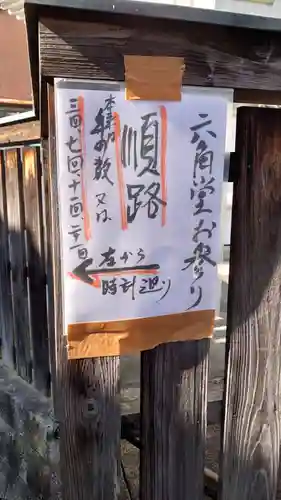 六角堂お参り
順路
本尊は年の数又は
三回、七回、十一回、二十一回
左から
時計廻り